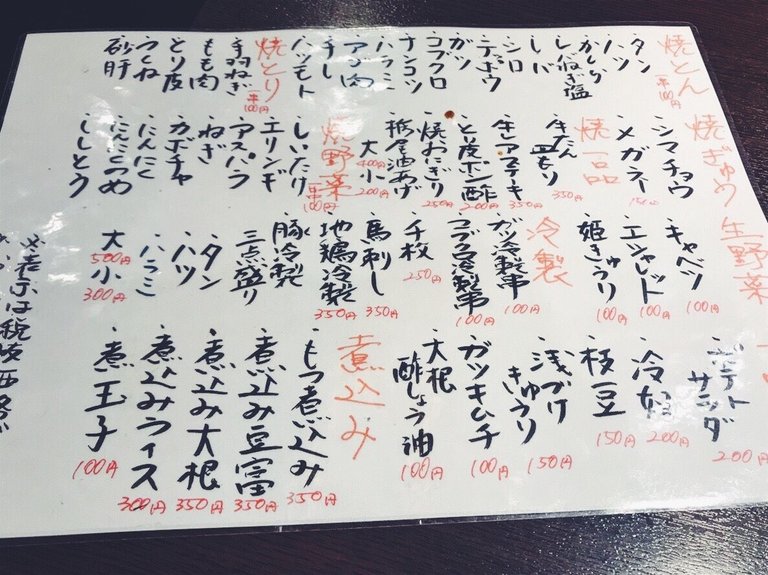 焼とん
一本100円
・タン
・ハツ
・かしら
・しろねぎ塩
・レバ
・シロ
・テッポウ
・ガツ
・コブクロ
・ナンコツ
・ハラミ
・アブ肉
・チレ
・ハツモト
焼とり
一本100円
・手羽ねぎ
・もも肉
・とり皮
・つくね
・砂肝
焼ぎゅう
・シマチョウ
・メガネ
150円
焼一品
・牛たん
皿もり
350円
・牛ステーキ
350円
・とり皮ポン酢
200円
・焼おにぎり
250円
・栃尾油あげ
大400円
小200円
焼野菜
一本100円
・しいたけ
・エリンギ
・アスパラ
・ねぎ
・カボチャ
・にんにく
・にんにくのめ
・ししとう
生野菜
・キャベツ
100円
・エシャレット
100円
・姫きゅうり
100円
冷製
・ガツ冷製串
100円
・コブクロ冷製串
100円
・千枚
250円
・馬刺し
350円
・地鶏冷製
350円
・豚冷製
三点盛り
・タン
・ハツ
・ハラミ
大500円
小300円
・ポテト
サラダ
200円
・冷奴
200円
・枝豆
150円
・浅づけ
きゅうり
150円
・ガツキムチ
100円
・大根
酢しょう油
100円
煮込み
・もつ煮込み
350円
・煮込み豆富
350円
・煮込み大根
350円
・煮込みライス
300円
・煮玉子
100円
※表示は税抜